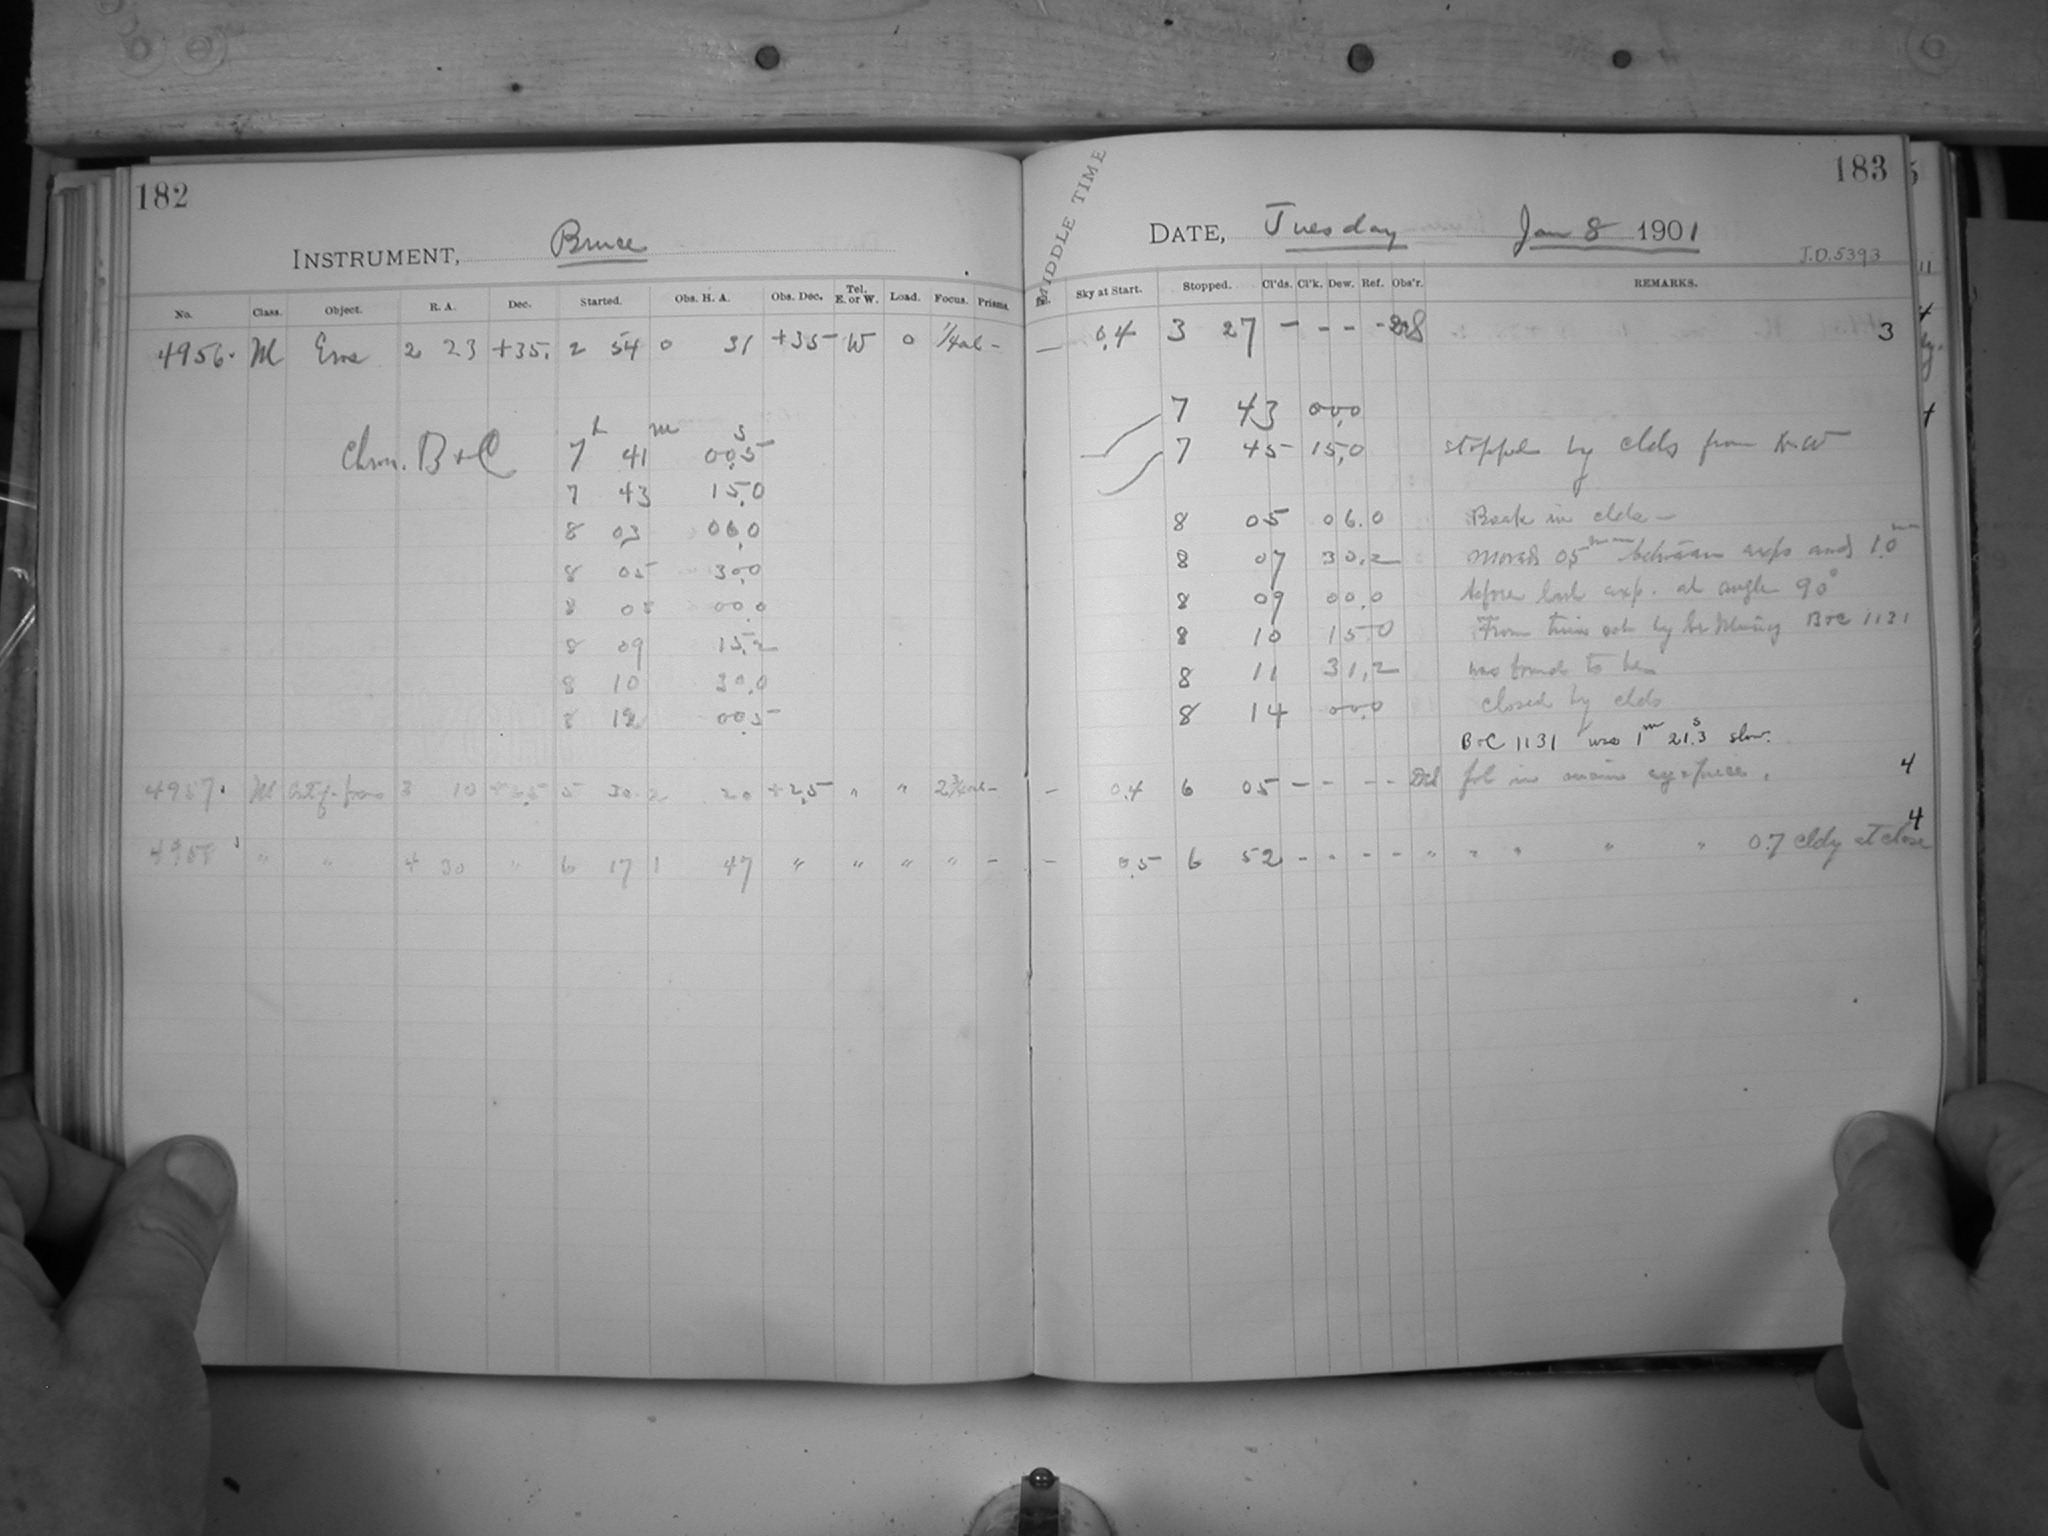 182
INSTRUMENT, Bruce
No. Class. Object. R. A. Dec. Started. Obs. H. A. Obs. Dec. Tel. E. or W. Load. Focus. Prisms.
4956. M Eros 2 23 +35. 2 54 0 31 +35 W 0 –
Chron. B+C 7h 41m 00.5s
7 43 15.0
8 03 06.0
8 05 30.0
8 08 00.0
8 09 15.2
8 10 30.0
8 12 00.5
4957. M 3 10 5 30 2 20 +2.5 " " –
4958 " " 4 30 " 6 17 1 47 " " " " –
183
MIDDLE TIME
DATE, Tuesday Jan 8 1901
J.D. 5393
Sky at Start. Stopped. Cl'ds. Cl'k. Dew. Ref. Obs'r. REMARKS.
— 0.4 3 27 – – – – 3
7 43 00.0
7 45 15.0 stopped by clds from N.W
8 05 06.0 Break in clds –
8 07 30.2 moved 0.5mm between exps and 1.0mm
8 09 00.0 before last exp. at angle 90°
8 10 15.0 From time B+C 1131
8 11 31.2 was found to be
8 14 00.0 closed by clds
B+C 1131 was 1m 21.3s slow.
– 0.4 6 05 – – – – fol in main eye-piece. 4
– 0.5 6 52 – – – – " " " " " 0.7 cldy at close 4